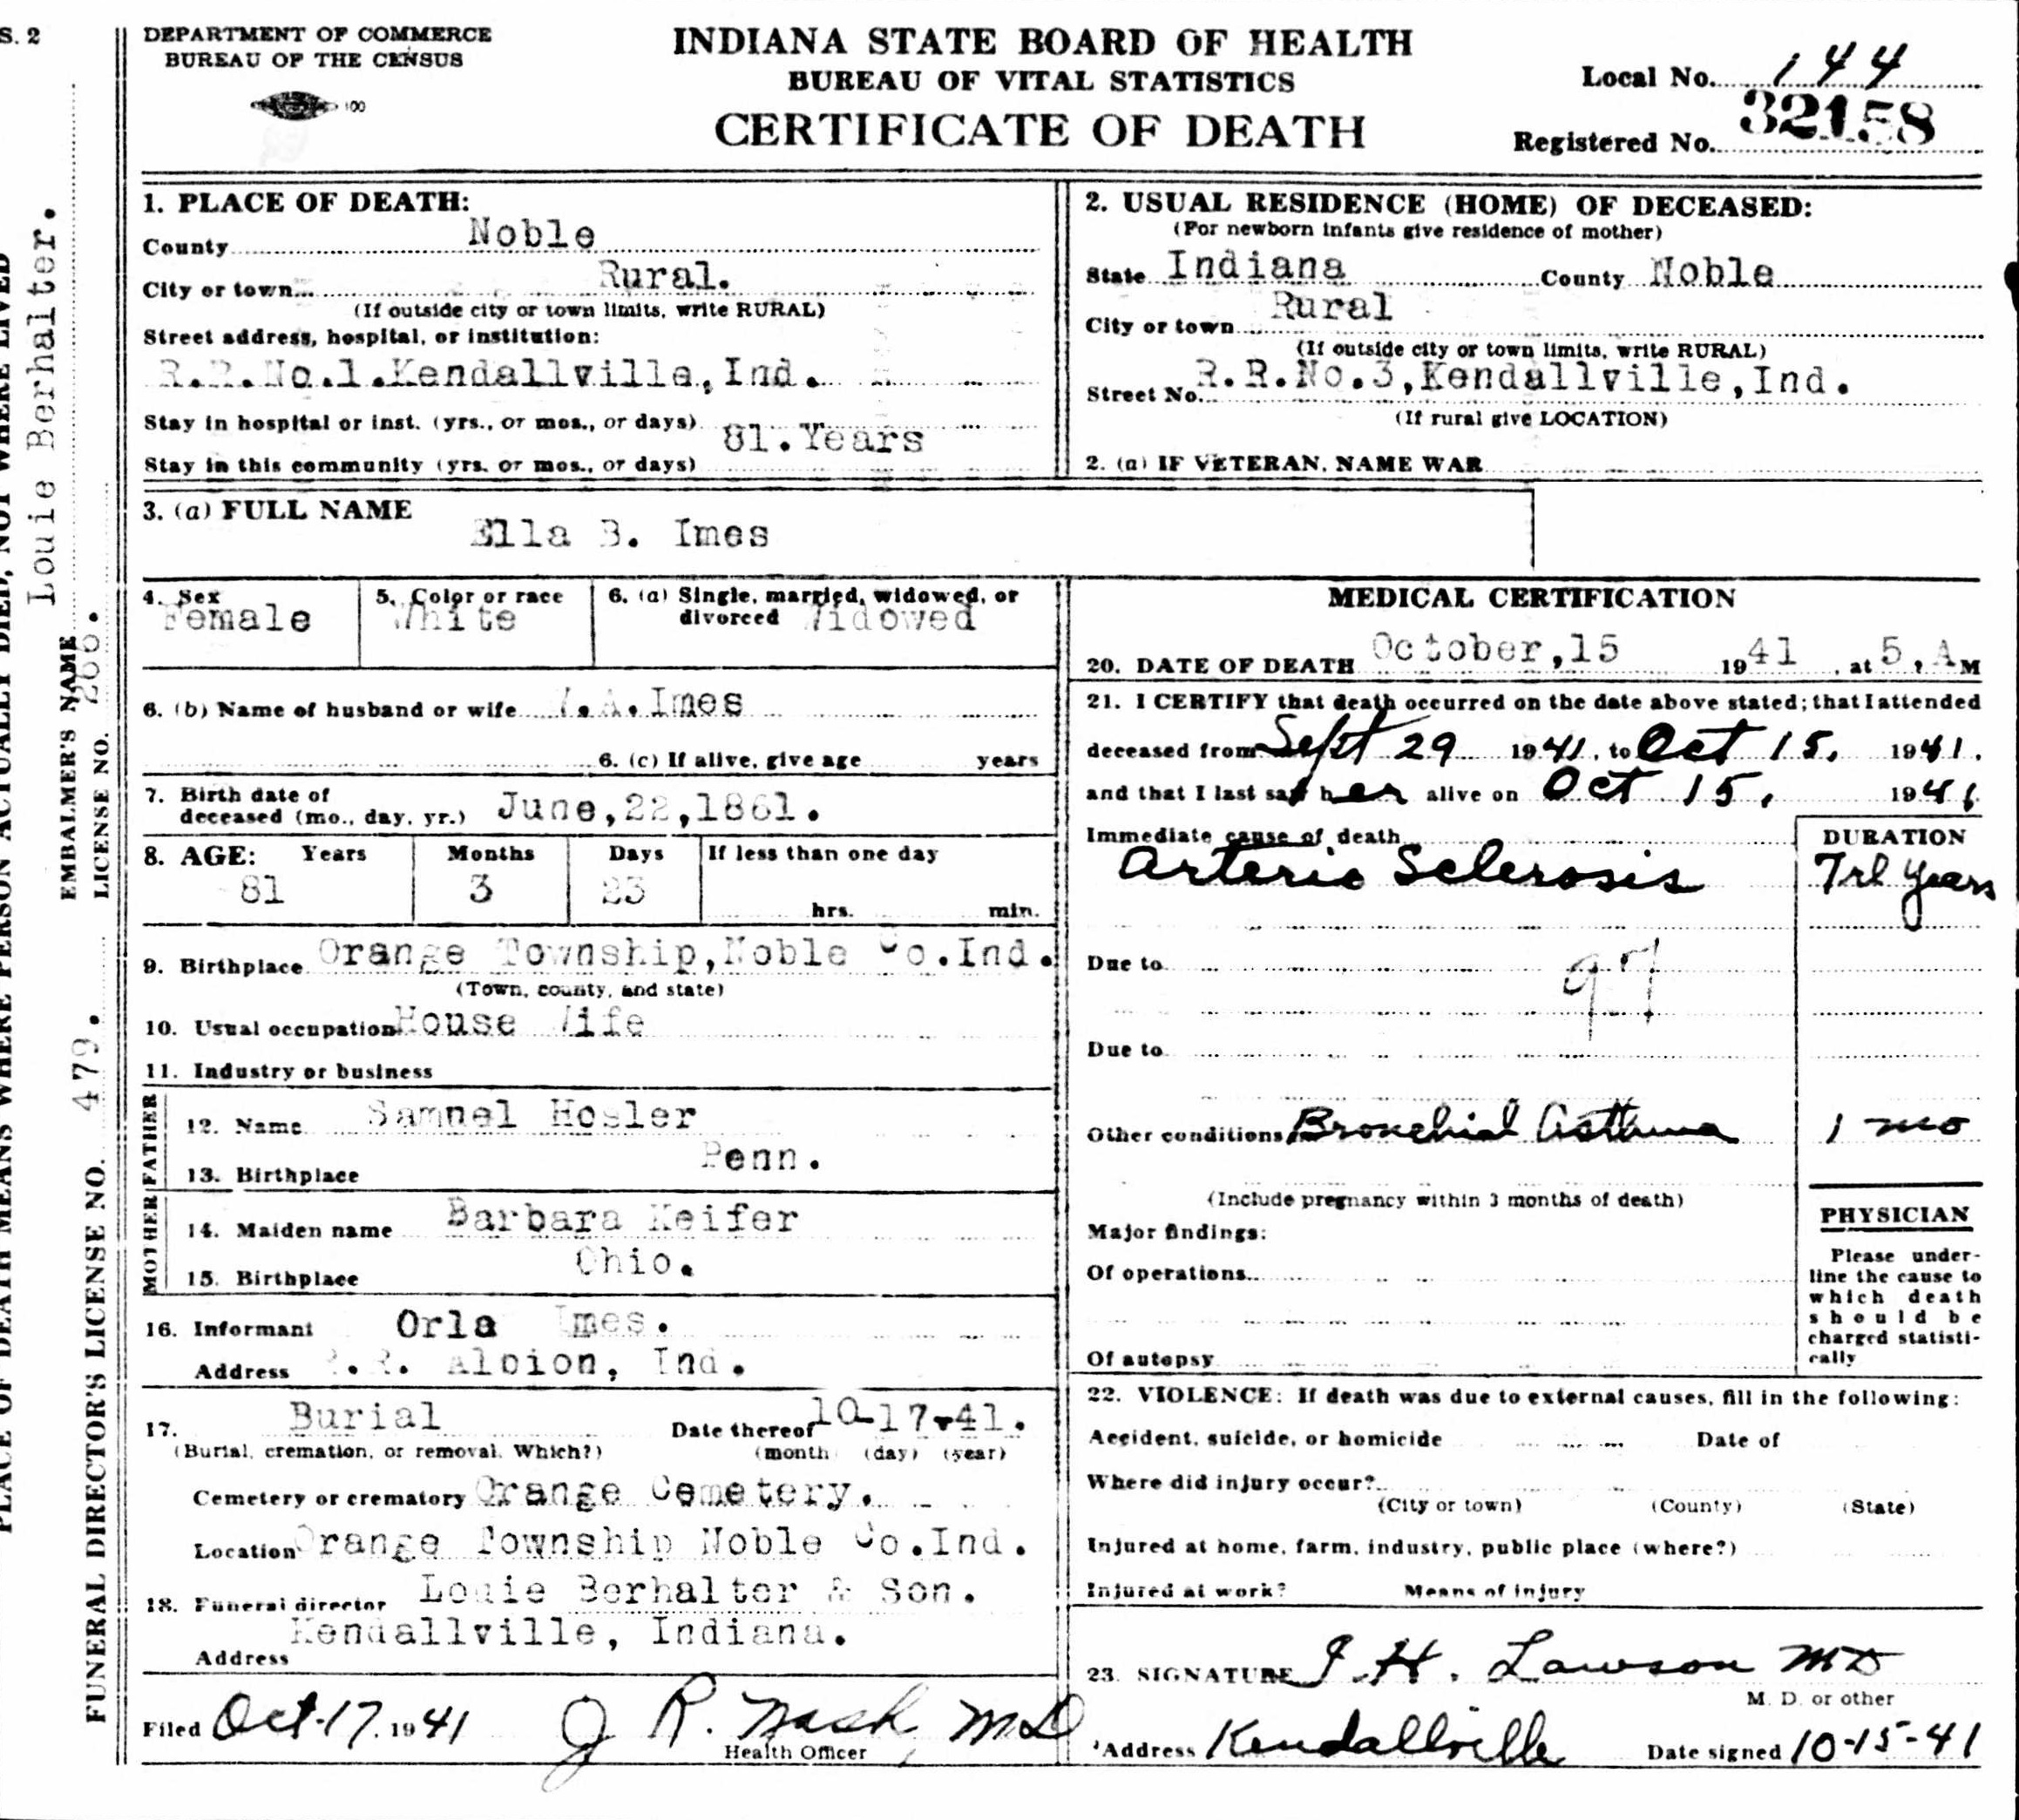 S. 2
DEPARTMENT OF COMMERCE
BUREAU OF THE CENSUS
100
INDIANA STATE BOARD OF HEALTH
BUREAU OF VITAL STATISTICS
CERTIFICATE OF DEATH
Local No. 144
Registered No. 32158
PLACE OF DEATH MEANS WHERE PERSON ACTUALLY DIED, NOT WHERE LIVED
Louie Berhalter.
EMBALMER'S NAME
LICENSE NO.
FUNERAL DIRECTOR'S LICENSE NO. 479.
1. PLACE OF DEATH:
County Noble
City or town Rural.
(If outside city or town limits, write RURAL)
Street address, hospital, or institution:
R.R.No.1.Kendallville,Ind.
Stay in hospital or inst. (yrs., or mos., or days)
81.Years
Stay in this community (yrs. or mos., or days)
2. USUAL RESIDENCE (HOME) OF DECEASED:
(For newborn infants give residence of mother)
State Indiana County Noble
City or town Rural
(If outside city or town limits, write RURAL)
Street No. R.R.No.3,Kendallville,Ind.
(If rural give LOCATION)
2. (a) IF VETERAN, NAME WAR
3. (a) FULL NAME Ella B. Imes
4. Sex Female
5. Color or race White
6. (a) Single, married, widowed, or divorced Widowed
6. (b) Name of husband or wife .A.Imes
6. (c) If alive, give age years
7. Birth date of
deceased (mo., day, yr.) June,22,1861.
8. AGE: Years Months Days If less than one day
81 3 23 hrs. min.
9. Birthplace Orange Township,Noble Co.Ind.
(Town, county, and state)
10. Usual occupation House Wife
11. Industry or business
FATHER
12. Name Samuel Hosler
13. Birthplace Penn.
MOTHER
14. Maiden name Barbara Keifer
15. Birthplace Ohio.
16. Informant Orla Imes.
Address R.R. Albion, Ind.
17. Burial Date thereof 10-17-41.
(Burial, cremation, or removal. Which?) (month) (day) (year)
Cemetery or crematory Orange Cemetery.
Location Orange Township Noble Co.Ind.
18. Funeral director Louie Berhalter & Son.
Kendallville, Indiana.
Address
Filed Oct-17, 1941 J R. Nash, MD
Health Officer
MEDICAL CERTIFICATION
20. DATE OF DEATH October,15 1941, at 5, A M
21. I CERTIFY that death occurred on the date above stated; that I attended
deceased from Sept 29 1941, to Oct 15, 1941.
and that I last saw her alive on Oct 15, 1941
Immediate cause of death DURATION
Arterio Sclerosis years
Due to 97
Due to
Other conditions Bronchial Asthma 1 mo
(Include pregnancy within 3 months of death)
Major findings:
Of operations
Of autopsy
PHYSICIAN
Please under-
line the cause to
which death
should be
charged statisti-
cally
22. VIOLENCE: If death was due to external causes, fill in the following:
Accident, suicide, or homicide Date of
Where did injury occur?
(City or town) (County) (State)
Injured at home, farm, industry, public place (where?)
Injured at work? Means of injury
23. SIGNATURE J.H. Lawson MD
M. D. or other
Address Kendallville Date signed 10-15-41